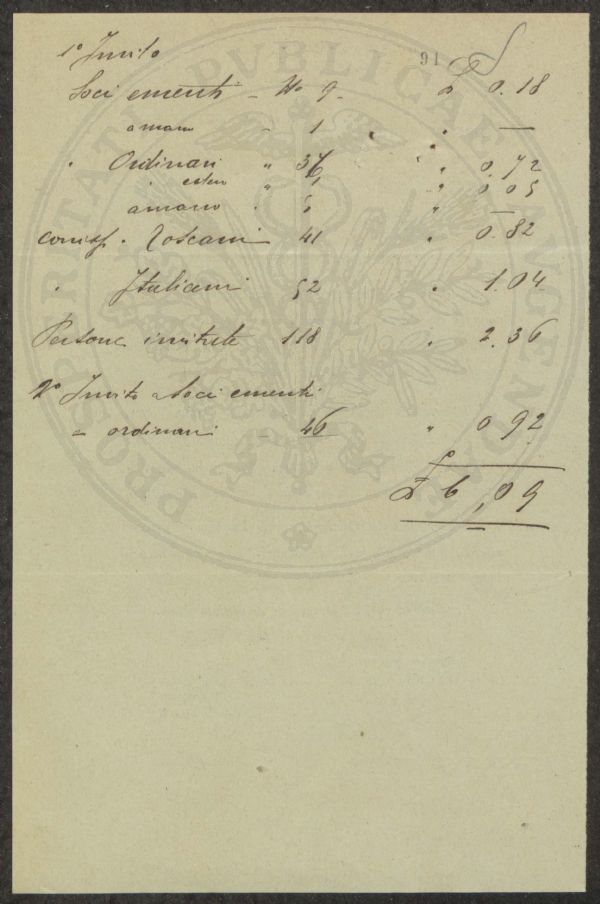 91
1º Invito
Soci emeriti - Nº 9 - £ 0.18
a mano - 1 " —
" Ordinari " 36 " 0.72
" esteri " 1 " 0 05
a mano " 5 " —
Corrisp. Toscani 41 " 0.82
" Italiani 52 " 1.04
Persone invitate 118 " 2.36
2º Invito a Soci emeriti
e ordinari - 46 " 0 92
£ 6,09
PROSPERITATI PVBLICAE AVGENDAE